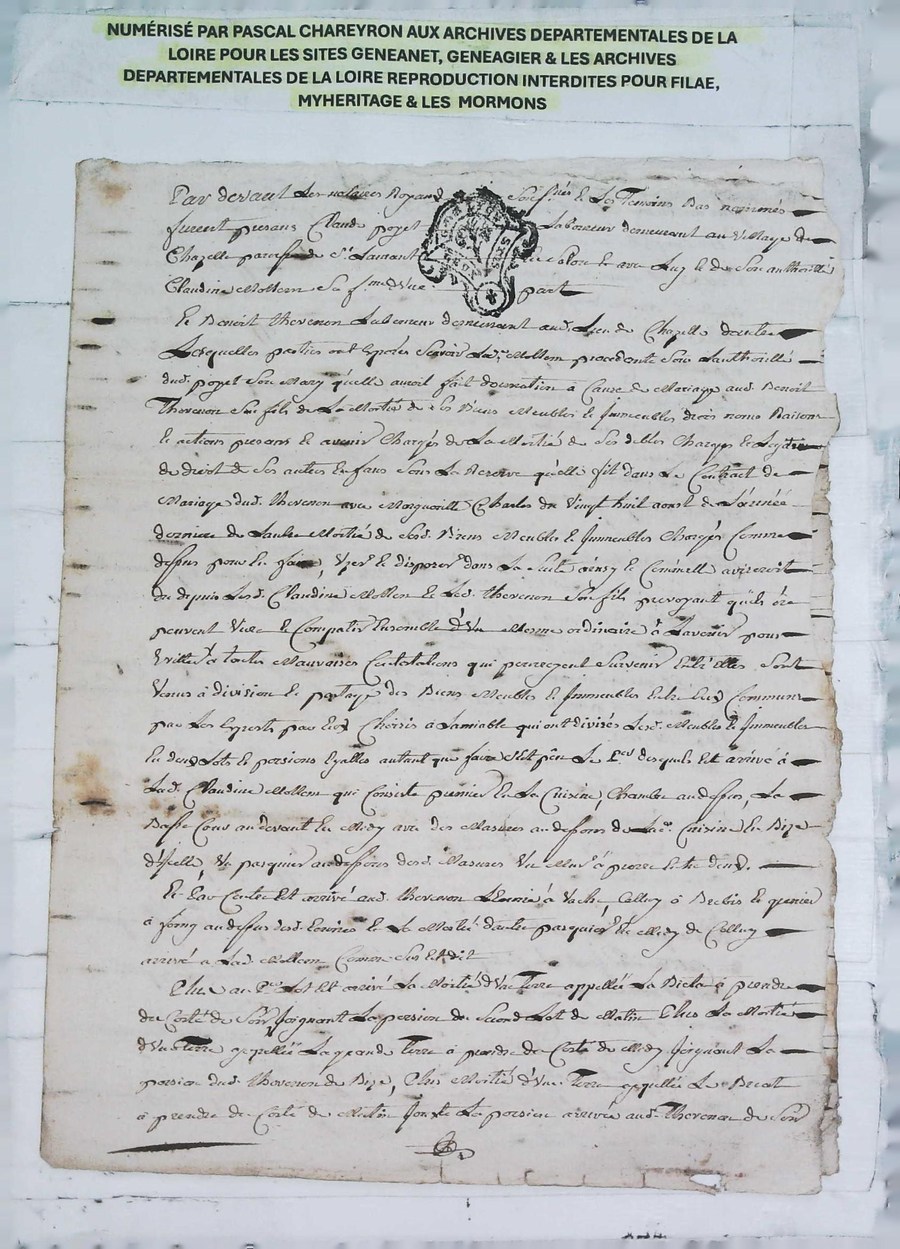 NUMÉRISÉ PAR PASCAL CHAREYRON AUX ARCHIVES DEPARTEMENTALES DE LA
LOIRE POUR LES SITES GENEANET, GENEAGIER & LES ARCHIVES
DEPARTEMENTALES DE LA LOIRE REPRODUCTION INTERDITES POUR FILAE,
MYHERITAGE & LES MORMONS
Par devant Les notaires Royaux Soussignés Et Les Temoins Bas nommés
furent presans Claude poyet Laboureur demeurant au Village de
Chapelle paroisse de St. et avec Luy et de Son authorité
Claudine Mollem Sa fme d'Vne part
Et Benoit thevenon Laboureur demeurant aud. Lieu de Chapelle d'autre
Lesquelles parties ont Exposés Scavoir Lad. Mollem procedente Sous Lauthorité
dud. poyet Son Mary quelle auroit fait donnation à Cause de Mariage aud. Benoit
Thevenon Son fils de La Moitié de Ses Biens Meubles Et Jmmeubles drois noms Raisons
Et actions presans Et avenir Chargés de La Moitié de Ses debtes Charges Et
de droist de Ses autres Enfans Sous La Reserve qu'elle fit dans Le Contract de
Mariage dud. thevenon avec Margueritte Charles du Vingt huit aout de L'année
derniere de Lautre Moitié de Sesd. Biens Meubles Et Jmmeubles Chargés Comme
dessus pour En faire, Et disposer dans La Suite ainsy Et Comme Elle aviseroit
ou depuis Lesd. Claudine Mollem Et Led. thevenon Son fils prevoyant quils ne
peuvent Vivre Et Compatir Ensemble d'Vn Mesme ordinaire à L'avenir pour
Eviter à toutes Mauvaises Contestations qui pourroyent Survenir Entre Elles Sont
Venus à division Et partage des Biens Meubles Et Jmmeubles Entre Eux Communs
par Les Experts par Eux Choisis à Lamiable qui ont divisés Lesd. Meubles Et Jmmeubles
En deux Lots Et porsions Egalles autant que faire s'est pû Le Per desquels Est arrivé à
Lad. Claudine Mollem qui Consiste premier En La Cuisine, Chambre au dessus, La
Basse Cour au devant En Midy avec des Masures au dessous de Lad. Cuisine En Bize
d'Jcelle Vn pasquier au dessous desd. Masures Vn Mur à pierre Entre deux.
Et Par Contre Est arrivé aud. thevenon L'Ecurie à Vache, Celluy à Brebis Et grenier
à foing au dessus desd. Ecuries Et La Moitié dautre pasquier En Midy de Celluy
arrivé a Lad. Mollem Comme Sus Est dit
Plus au Per Lot Est arrivé La Moitié d'Vne Terre appellée La à prendre
du Costé de Soir Joignant La porsion du Second Lot de Matin Plus La Moitié
d'Vne Terre appellée La grande Terre à prendre du Costé de Midy Joignant La
porsion dud. thevenon de Bize, Plus Moitié d'Vne Terre appellée Le
à prendre du Costé de Matin Jouxte La porsion arrivée aud. thevenon de Soir